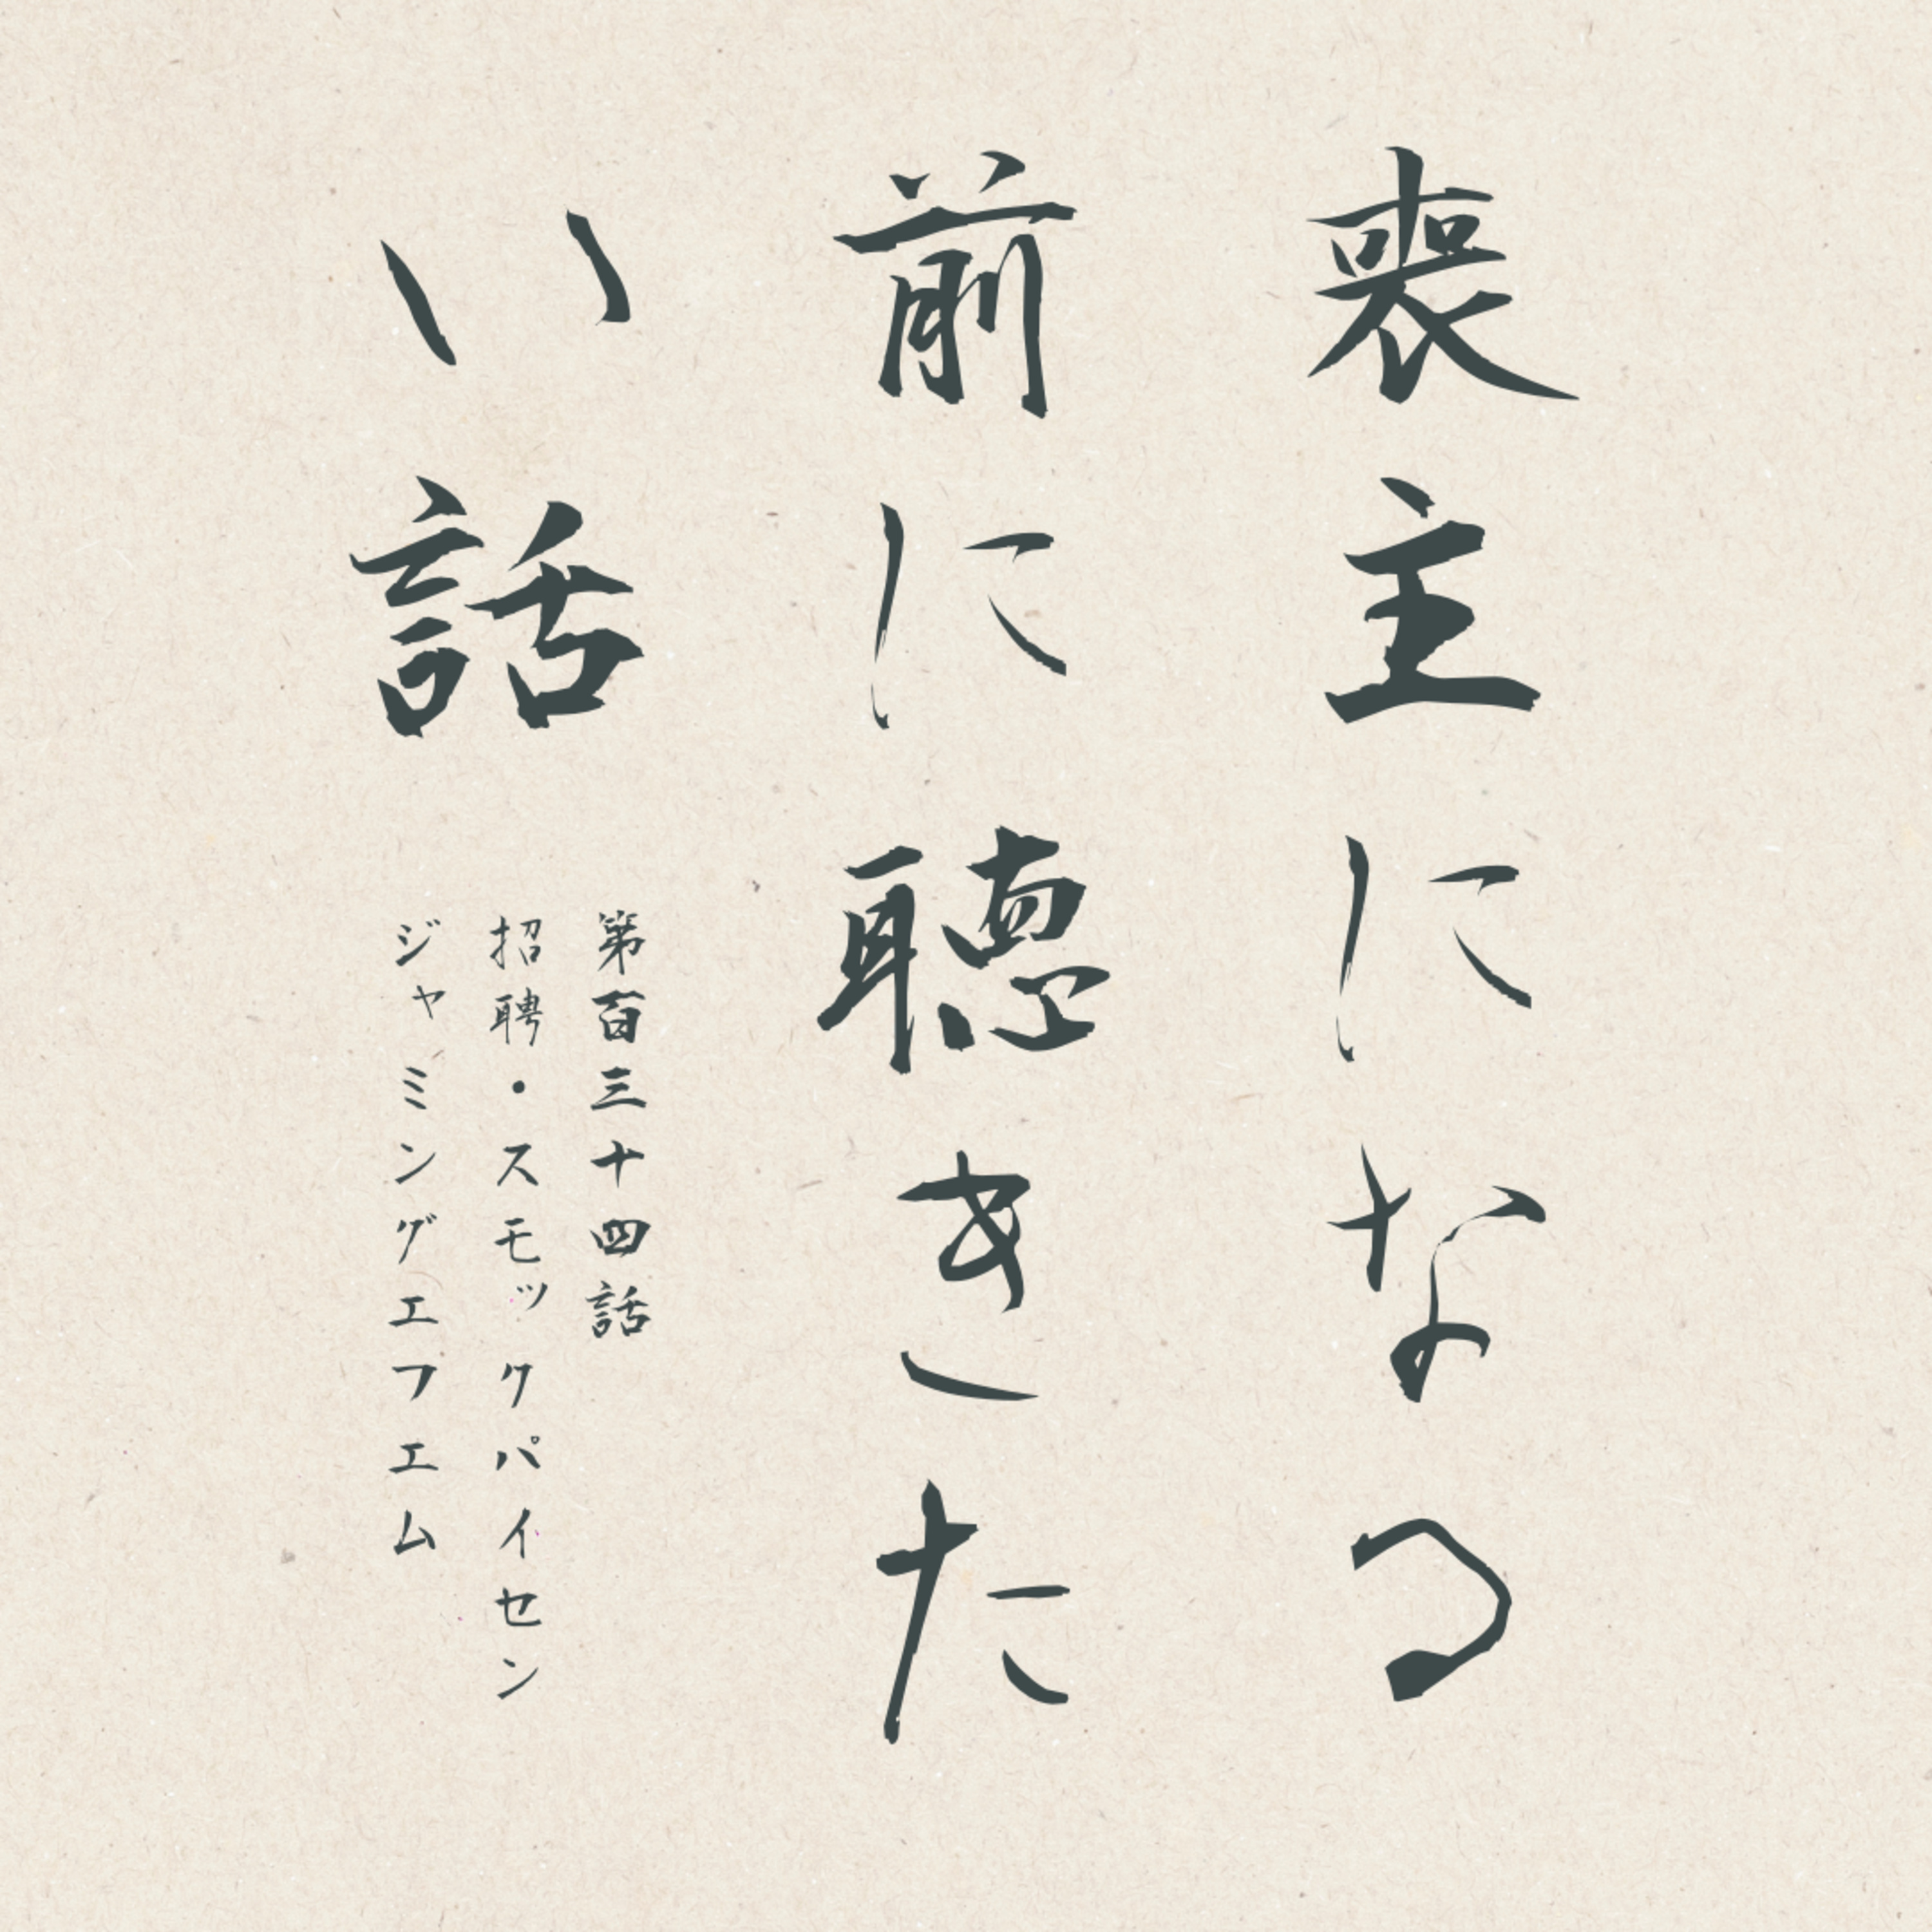 喪主になる
前に聴きた
い話
第百三十四話
招聘・スモックパイセン
ジャミングエフエム